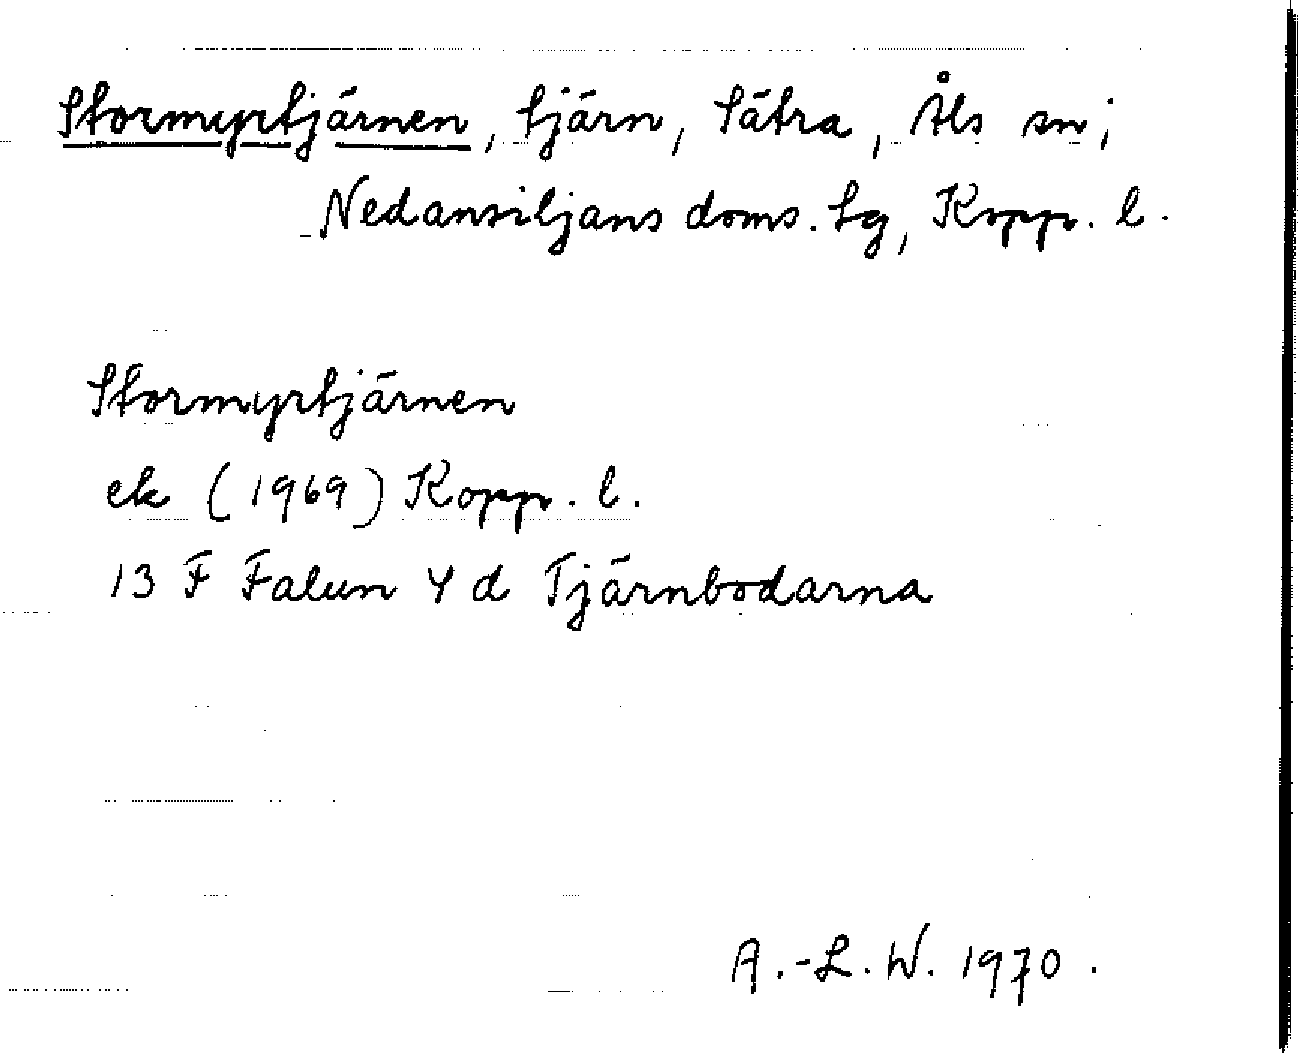 Stormyrtjärnen, tjärn, Sätra, Åls sn,
Nedansiljans doms. tg, Kopp. l.
Stormyrtjärnen
ek (1969) Kopp. l.
13 F Falun 4 d Tjärnbodarna
A.-L. W. 1970.